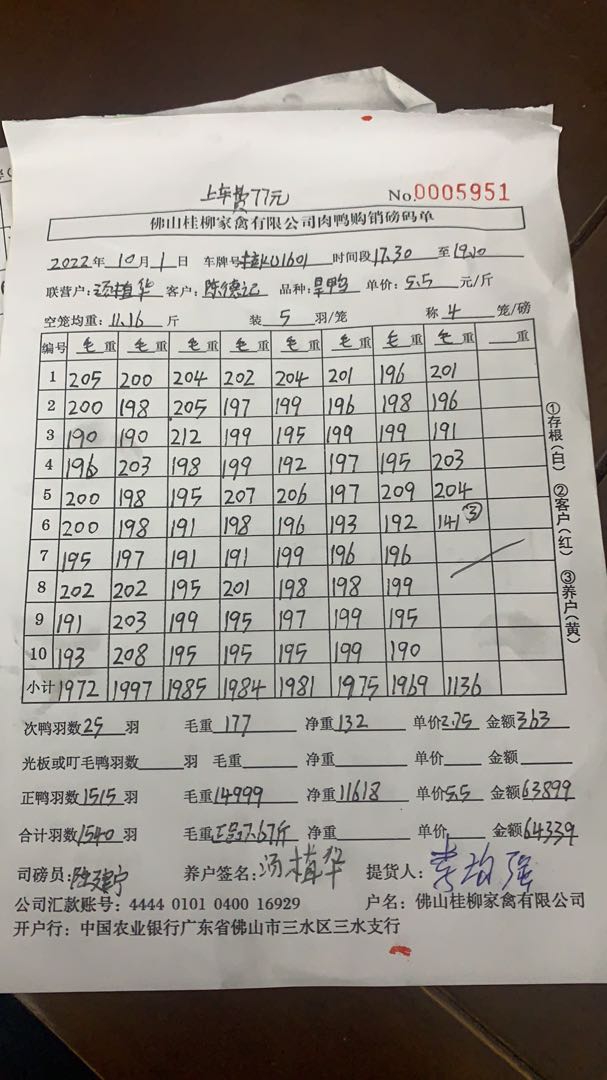 上车费77元
No.0005951
佛山桂柳家禽有限公司肉鸭购销磅码单
2022年10月1日 车牌号桂KU1601 时间段17.30至19.10
联营户:汤植华 客户:陈德记 品种:旱鸭 单价:5.5元/斤
空笼均重:11.16斤 装5羽/笼 称4笼/磅
编号 毛重 毛重 毛重 毛重 毛重 毛重 毛重 毛重 重
1 205 200 204 202 204 201 196 201
2 200 198 205 197 199 196 198 196
3 190 190 212 199 195 199 199 191
4 196 203 198 199 192 197 195 203
5 200 198 195 207 206 197 209 204
6 200 198 191 198 196 193 192 141③
7 195 197 191 191 199 196 196
8 202 202 195 201 198 198 199
9 191 203 199 195 197 199 195
10 193 208 195 195 195 199 190
小计 1972 1997 1985 1984 1981 1975 1969 1136
①存根(白) ②客户(红) ③养户(黄)
次鸭羽数25羽 毛重177 净重132 单价2.75 金额363
光板或叮毛鸭羽数 羽 毛重 净重 单价 金额
正鸭羽数1515羽 毛重14999 净重11618 单价5.5 金额63899
合计羽数1540羽 毛重正品7.67斤 净重 单价 金额64339
司磅员: 养户签名:汤植华 提货人:
公司汇款账号:4444 0101 0400 16929 户名:佛山桂柳家禽有限公司
开户行:中国农业银行广东省佛山市三水区三水支行